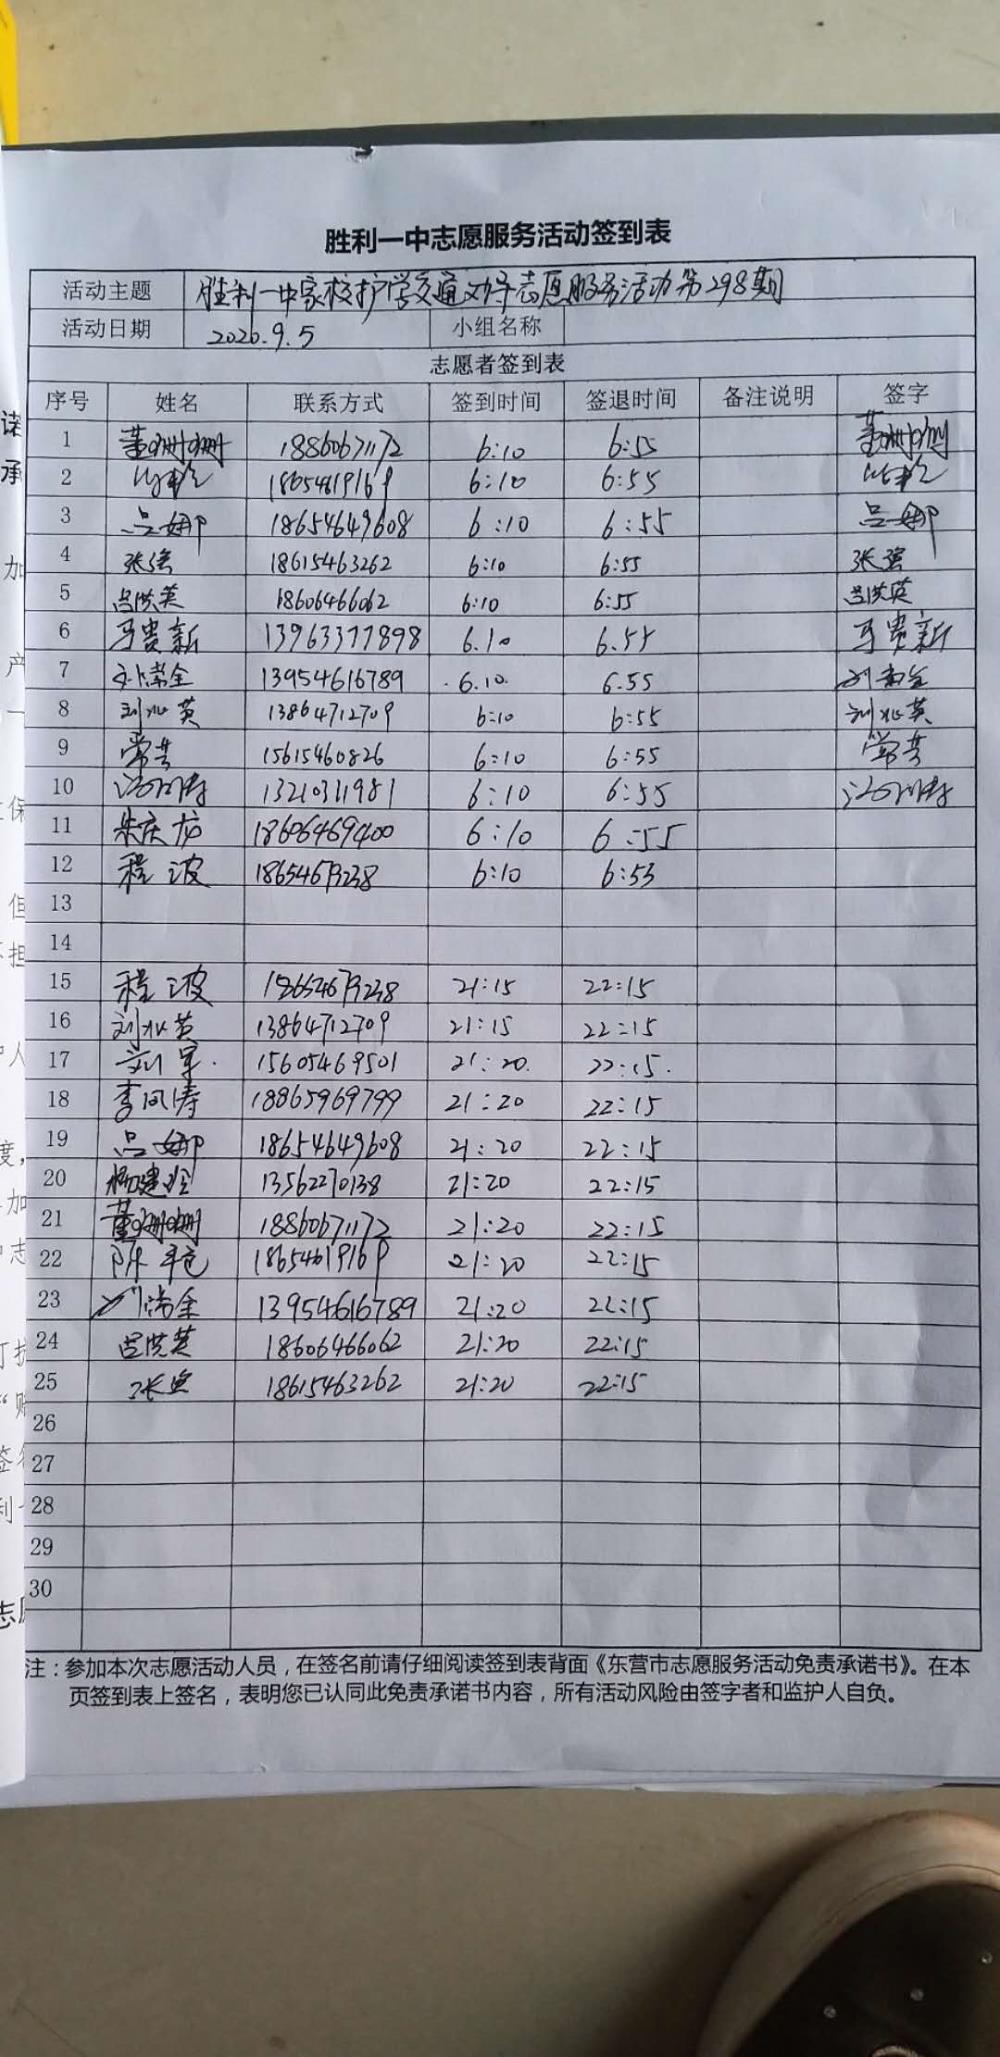 胜利一中志愿服务活动签到表
活动主题 胜利一中家校护学交通劝导志愿服务活动第298期
活动日期 2020.9.5 小组名称
志愿者签到表
序号 姓名 联系方式 签到时间 签退时间 备注说明 签字
1 董珊珊 18860671172 6:10 6:55 董珊珊
2 18654619169 6:10 6:55
3 吕娜 18654649608 6:10 6:55 吕娜
4 张强 18615463262 6:10 6:55 张强
5 吕洪英 18606466062 6:10 6:55 吕洪英
6 马贵新 13963377898 6.10 6.55 马贵新
7 13954616789 6.10. 6.55
8 刘兆英 13864712709 6:10 6:55 刘兆英
9 常芸 15615460826 6:10 6:55 常芸
10 13210311981 6:10 6:55
11 朱庆龙 18606469400 6:10 6:55
12 程波 18654679238 6:10 6:55
13
14
15 程波 18654679238 21:15 22:15
16 刘兆英 13864712709 21:15 22:15
17 刘军. 15605469501 21:20. 22:15.
18 李凤涛 18865969799 21:20 22:15
19 吕娜 18654649608 21:20 22:15
20 杨建 13562270138 21:20 22:15
21 董珊珊 18860671172 21:20 22:15
22 陈 18654619169 21:20 22:15
23 13954616789 21:20 22:15
24 吕洪英 18606466062 21:20 22:15
25 张强 18615463262 21:20 22:15
26
27
28
29
30
注：参加本次志愿活动人员，在签名前请仔细阅读签到表背面《东营市志愿服务活动免责承诺书》。在本
页签到表上签名，表明您已认同此免责承诺书内容，所有活动风险由签字者和监护人自负。